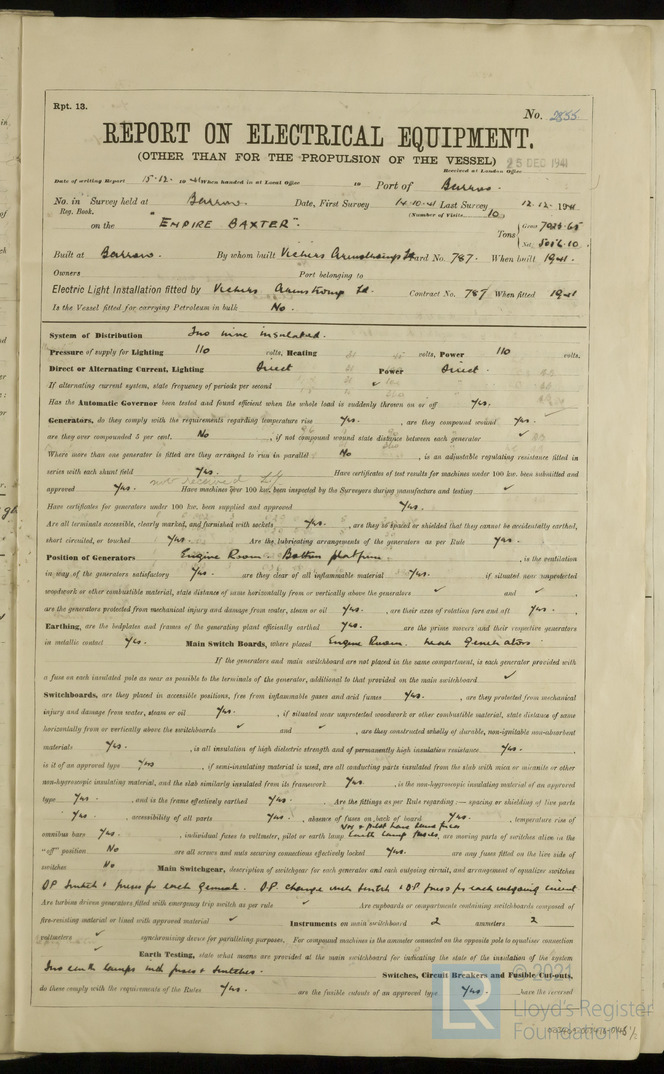 Rpt. 13.
No. 2855
REPORT ON ELECTRICAL EQUIPMENT.
(OTHER THAN FOR THE PROPULSION OF THE VESSEL)
25 DEC 1941
Received at London Office
Date of writing Report 15-12- 19 41 When handed in at Local Office 19 Port of Barrow.
No. in Survey held at Barrow. Date, First Survey 14-10-41 Last Survey 12-12-1941
Reg. Book. (Number of Visits 10)
on the "EMPIRE BAXTER". Tons { Gross 7024.65
Net 5016.10
Built at Barrow. By whom built Vickers Armstrongs Ld Yard No. 787. When built 1941.
Owners Port belonging to
Electric Light Installation fitted by Vickers Armstrong Ld. Contract No. 787 When fitted 1941
Is the Vessel fitted for carrying Petroleum in bulk No.
System of Distribution Two wire insulated.
Pressure of supply for Lighting 110 volts, Heating volts, Power 110 volts.
Direct or Alternating Current, Lighting Direct Power Direct.
If alternating current system, state frequency of periods per second ✓
Has the Automatic Governor been tested and found efficient when the whole load is suddenly thrown on or off Yes.
Generators, do they comply with the requirements regarding temperature rise Yes. , are they compound wound Yes.
are they over compounded 5 per cent. No , if not compound wound state distance between each generator ✓
Where more than one generator is fitted are they arranged to run in parallel No , is an adjustable regulating resistance fitted in
series with each shunt field Yes. Have certificates of test results for machines under 100 kw. been submitted and
not received
approved Yes. Have machines over 100 kw. been inspected by the Surveyors during manufacture and testing ✓
Have certificates for generators under 100 kw. been supplied and approved Yes.
Are all terminals accessible, clearly marked, and furnished with sockets Yes. , are they so spaced or shielded that they cannot be accidentally earthed,
short circuited, or touched Yes. Are the lubricating arrangements of the generators as per Rule Yes.
Position of Generators Engine Room. Bottom platform. , is the ventilation
in way of the generators satisfactory Yes. are they clear of all inflammable material Yes. if situated near unprotected
woodwork or other combustible material, state distance of same horizontally from or vertically above the generators ✓ and ✓ ,
are the generators protected from mechanical injury and damage from water, steam or oil Yes. , are their axes of rotation fore and aft Yes.
Earthing, are the bedplates and frames of the generating plant efficiently earthed Yes. are the prime movers and their respective generators
in metallic contact Yes. Main Switch Boards, where placed Engine Room. near generators.
If the generators and main switchboard are not placed in the same compartment, is each generator provided with
a fuse on each insulated pole as near as possible to the terminals of the generator, additional to that provided on the main switchboard ✓
Switchboards, are they placed in accessible positions, free from inflammable gases and acid fumes Yes. , are they protected from mechanical
injury and damage from water, steam or oil Yes. , if situated near unprotected woodwork or other combustible material, state distance of same
horizontally from or vertically above the switchboards ✓ and ✓ , are they constructed wholly of durable, non-ignitable non-absorbent
materials Yes. , is all insulation of high dielectric strength and of permanently high insulation resistance Yes.
is it of an approved type Yes , if semi-insulating material is used, are all conducting parts insulated from the slab with mica or micanite or other
non-hygroscopic insulating material, and the slab similarly insulated from its framework Yes. , is the non-hygroscopic insulating material of an approved
type Yes. , and is the frame effectively earthed Yes. . Are the fittings as per Rule regarding :— spacing or shielding of live parts
Yes. , accessibility of all parts Yes. , absence of fuses on back of board Yes. , temperature rise of
V/M & pilot have lamp fuses
omnibus bars Yes. , individual fuses to voltmeter, pilot or earth lamp Earth lamp fuses. , are moving parts of switches alive in the
"off" position No are all screws and nuts securing connections effectively locked Yes. are any fuses fitted on the live side of
switches No Main Switchgear, description of switchgear for each generator and each outgoing circuit, and arrangement of equalizer switches
DP switch & fuses for each generator. DP change over switch & DP fuses for each outgoing circuit
Are turbine driven generators fitted with emergency trip switch as per rule ✓ Are cupboards or compartments containing switchboards composed of
fire-resisting material or lined with approved material ✓ Instruments on main switchboard 2 ammeters 2
voltmeters ✓ synchronising device for paralleling purposes. For compound machines is the ammeter connected on the opposite pole to equaliser connection
✓ Earth Testing, state what means are provided at the main switchboard for indicating the state of the insulation of the system
Two earth lamps with fuses & switches. Switches, Circuit Breakers and Fusible Cut-outs,
do these comply with the requirements of the Rules Yes. are the fusible cutouts of an approved type Yes. , have the reversed
© 2021
LR
Lloyd's Register
Foundation